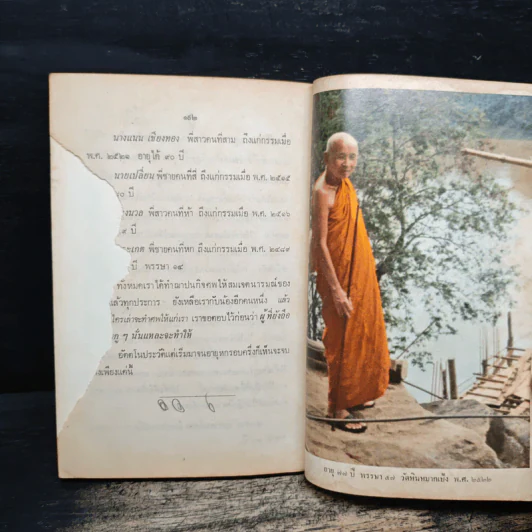 ๑๕๒
นางแนน เชียงทอง พี่สาวคนที่สาม ถึงแก่กรรมเมื่อ
พ.ศ. ๒๕๒๑ อายุได้ ๙๐ ปี
นายเปลี่ยน พี่ชายคนที่สี่ ถึงแก่กรรมเมื่อ พ.ศ. ๒๕๑๕
๐ ปี
งนวล พี่สาวคนที่ห้า ถึงแก่กรรมเมื่อ พ.ศ. ๒๕๐๖
๑ ปี
ะเกต พี่ชายคนที่หก ถึงแก่กรรมเมื่อ พ.ศ. ๒๔๘๙
ปี พรรษา ๑๔
ทั้งหมดเราได้ทำฌาปนกิจศพให้สมเจตนารมณ์ของ
แล้วทุกประการ ยังเหลือเรากับน้องอีกคนหนึ่ง แล้ว
ใครเล่าจะทำศพให้แก่เรา เราขอตอบไว้ก่อนว่า ผู้ที่ยังยือ
ๆ นั่นแหละจะทำให้
อัตตโนประวัติแต่เริ่มมาจนอายุหกรอบครึ่งก็เห็นจะจบ
งเพียงแค่นี้
อายุ ๗๗ ปี พรรษา ๕๗ วัดหินหมากเป้ง พ.ศ. ๒๕๒๒